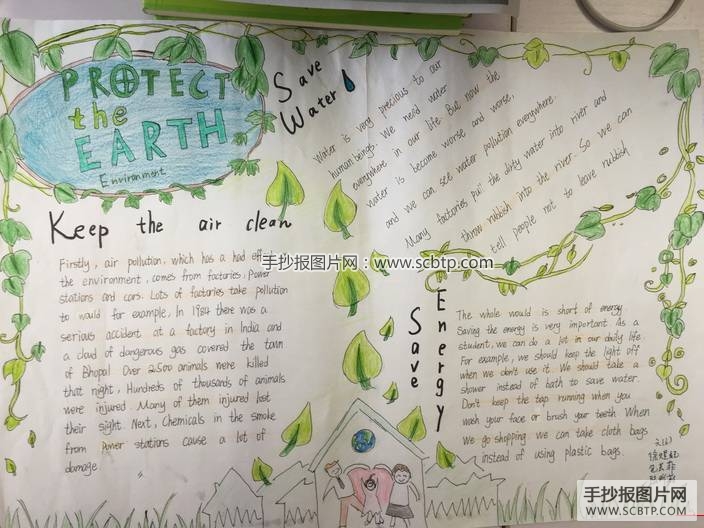 PROTECT
the
EARTH
Environment
Save
Water
Water is very precious to our
human beings. We neild water
everywhere in our life. But now the
water is became worse and worse,
and we can see water pollution everywhere.
Many factories put the dirty water into river and
throw rubbish into the river. So we can
tell people not to leave rubbish
Keep the air clean
Firstly, air pollution, which has a had eff
the environment, comes from factories, Power
stations and cars. Lots of factories take pollution
to would for example, In 1984 there was a
serious accident at a factory in India and
a cloud of dangerous gas covered the town
of Bhopal Over 2500 animals were killed
that night, Hundreds of thousands of animals
were injured. Many of them injured lost
their sight. Next, Chemicals in the smoke
from Power stations cause a lot of
damage
手抄报图片网：www.scbtp.com
Save
Energy
The whole would is short of energy
Saving the energy is very important. As a
student, we can do a lot in our daily life.
For example, we should keep the light off
when we don't use it. We should take a
shower instead of bath to save water.
Don't keep the tap running when you
wash your face or brush your teeth. When
we go shopping we can take cloth bags
instead of using plastic bags.
手抄报图片网
WWW.SCBTP.COM